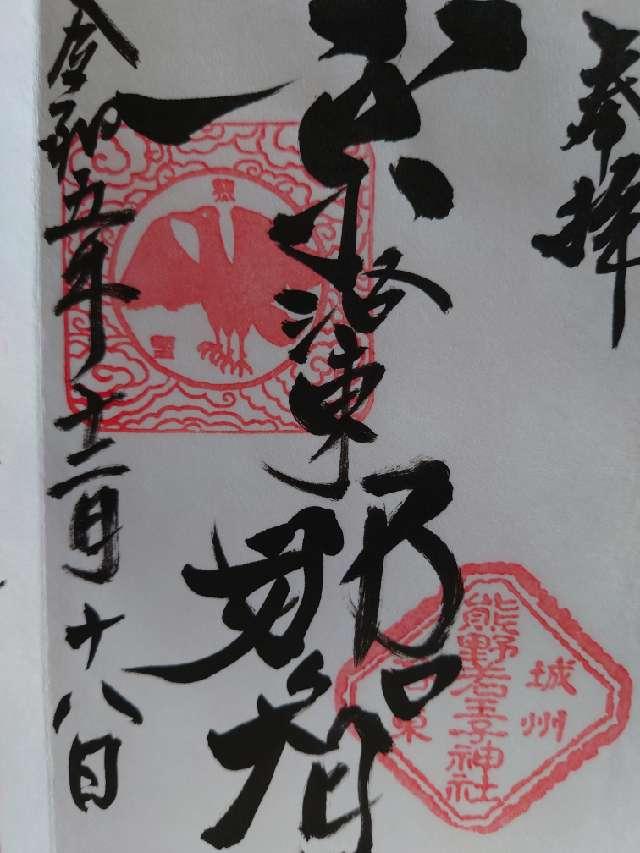 奉拝
京洛東
那智
令和五年十二月十八日
城州
熊野若王子神社
洛東